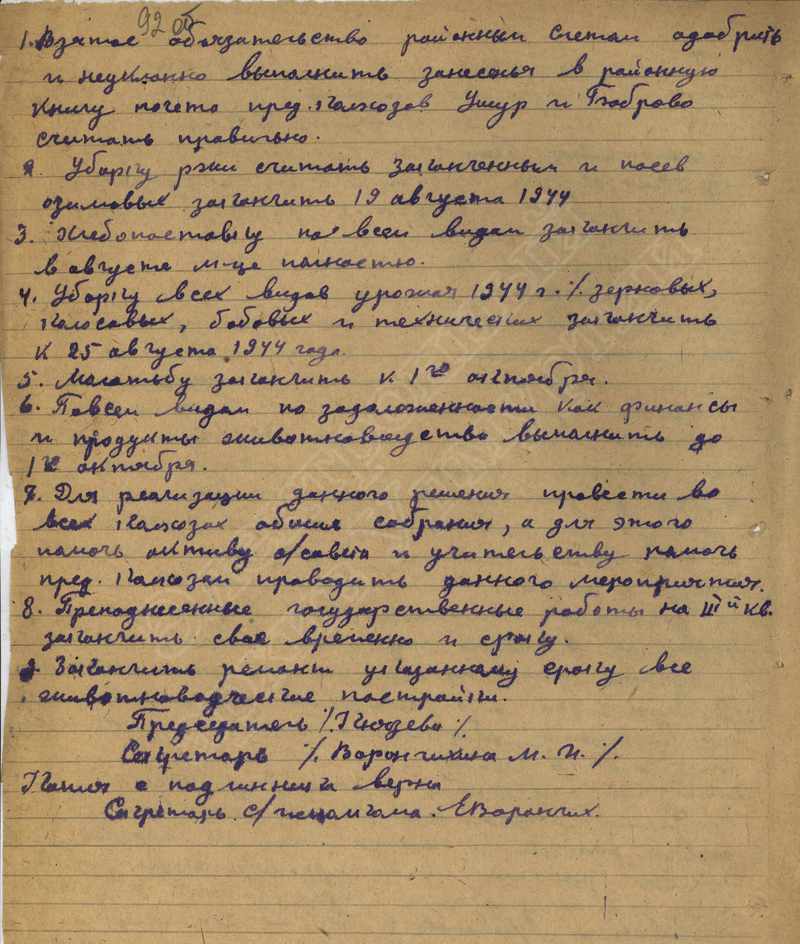 92 об
1. Взятое обязательство районным слетом одобрить
и неуклонно выполнить занесенья в районную
книгу почета пред. колхозов Ушур и Боброво
считать правильно.
2. Уборку ржи считать законченным и посев
озимовых закончить 19 августа 1944
3. Хлебопоставку по всем видам закончить
в августе м-це полностью.
4. Уборку всех видов урожая 1944 г. % зерновых,
колосовых, бобовых и технических закончить
к 25 августа 1944 года.
5. Молотьбу закончить к 1го октября.
6. Повсем видам по задолженности как финансы
и продукты животноводства выполнить до
1го октября.
7. Для реализации данного решения провести во
всех колхозах общие собрания, а для этого
помочь активу с/совета и учительству помочь
пред. колхозам проводить данного мероприятия.
8. Преподнесенные государственные работы на IIIй кв.
закончить свое временно и сроку.
9. Закончить ремонт указанному сроку все
животноводческие постройки.
Председатель % Князева %
Секретарь % Ворончихина М. И. %
Копия с подлинника верна
Секретарь с/исполкома ЕВорончих.